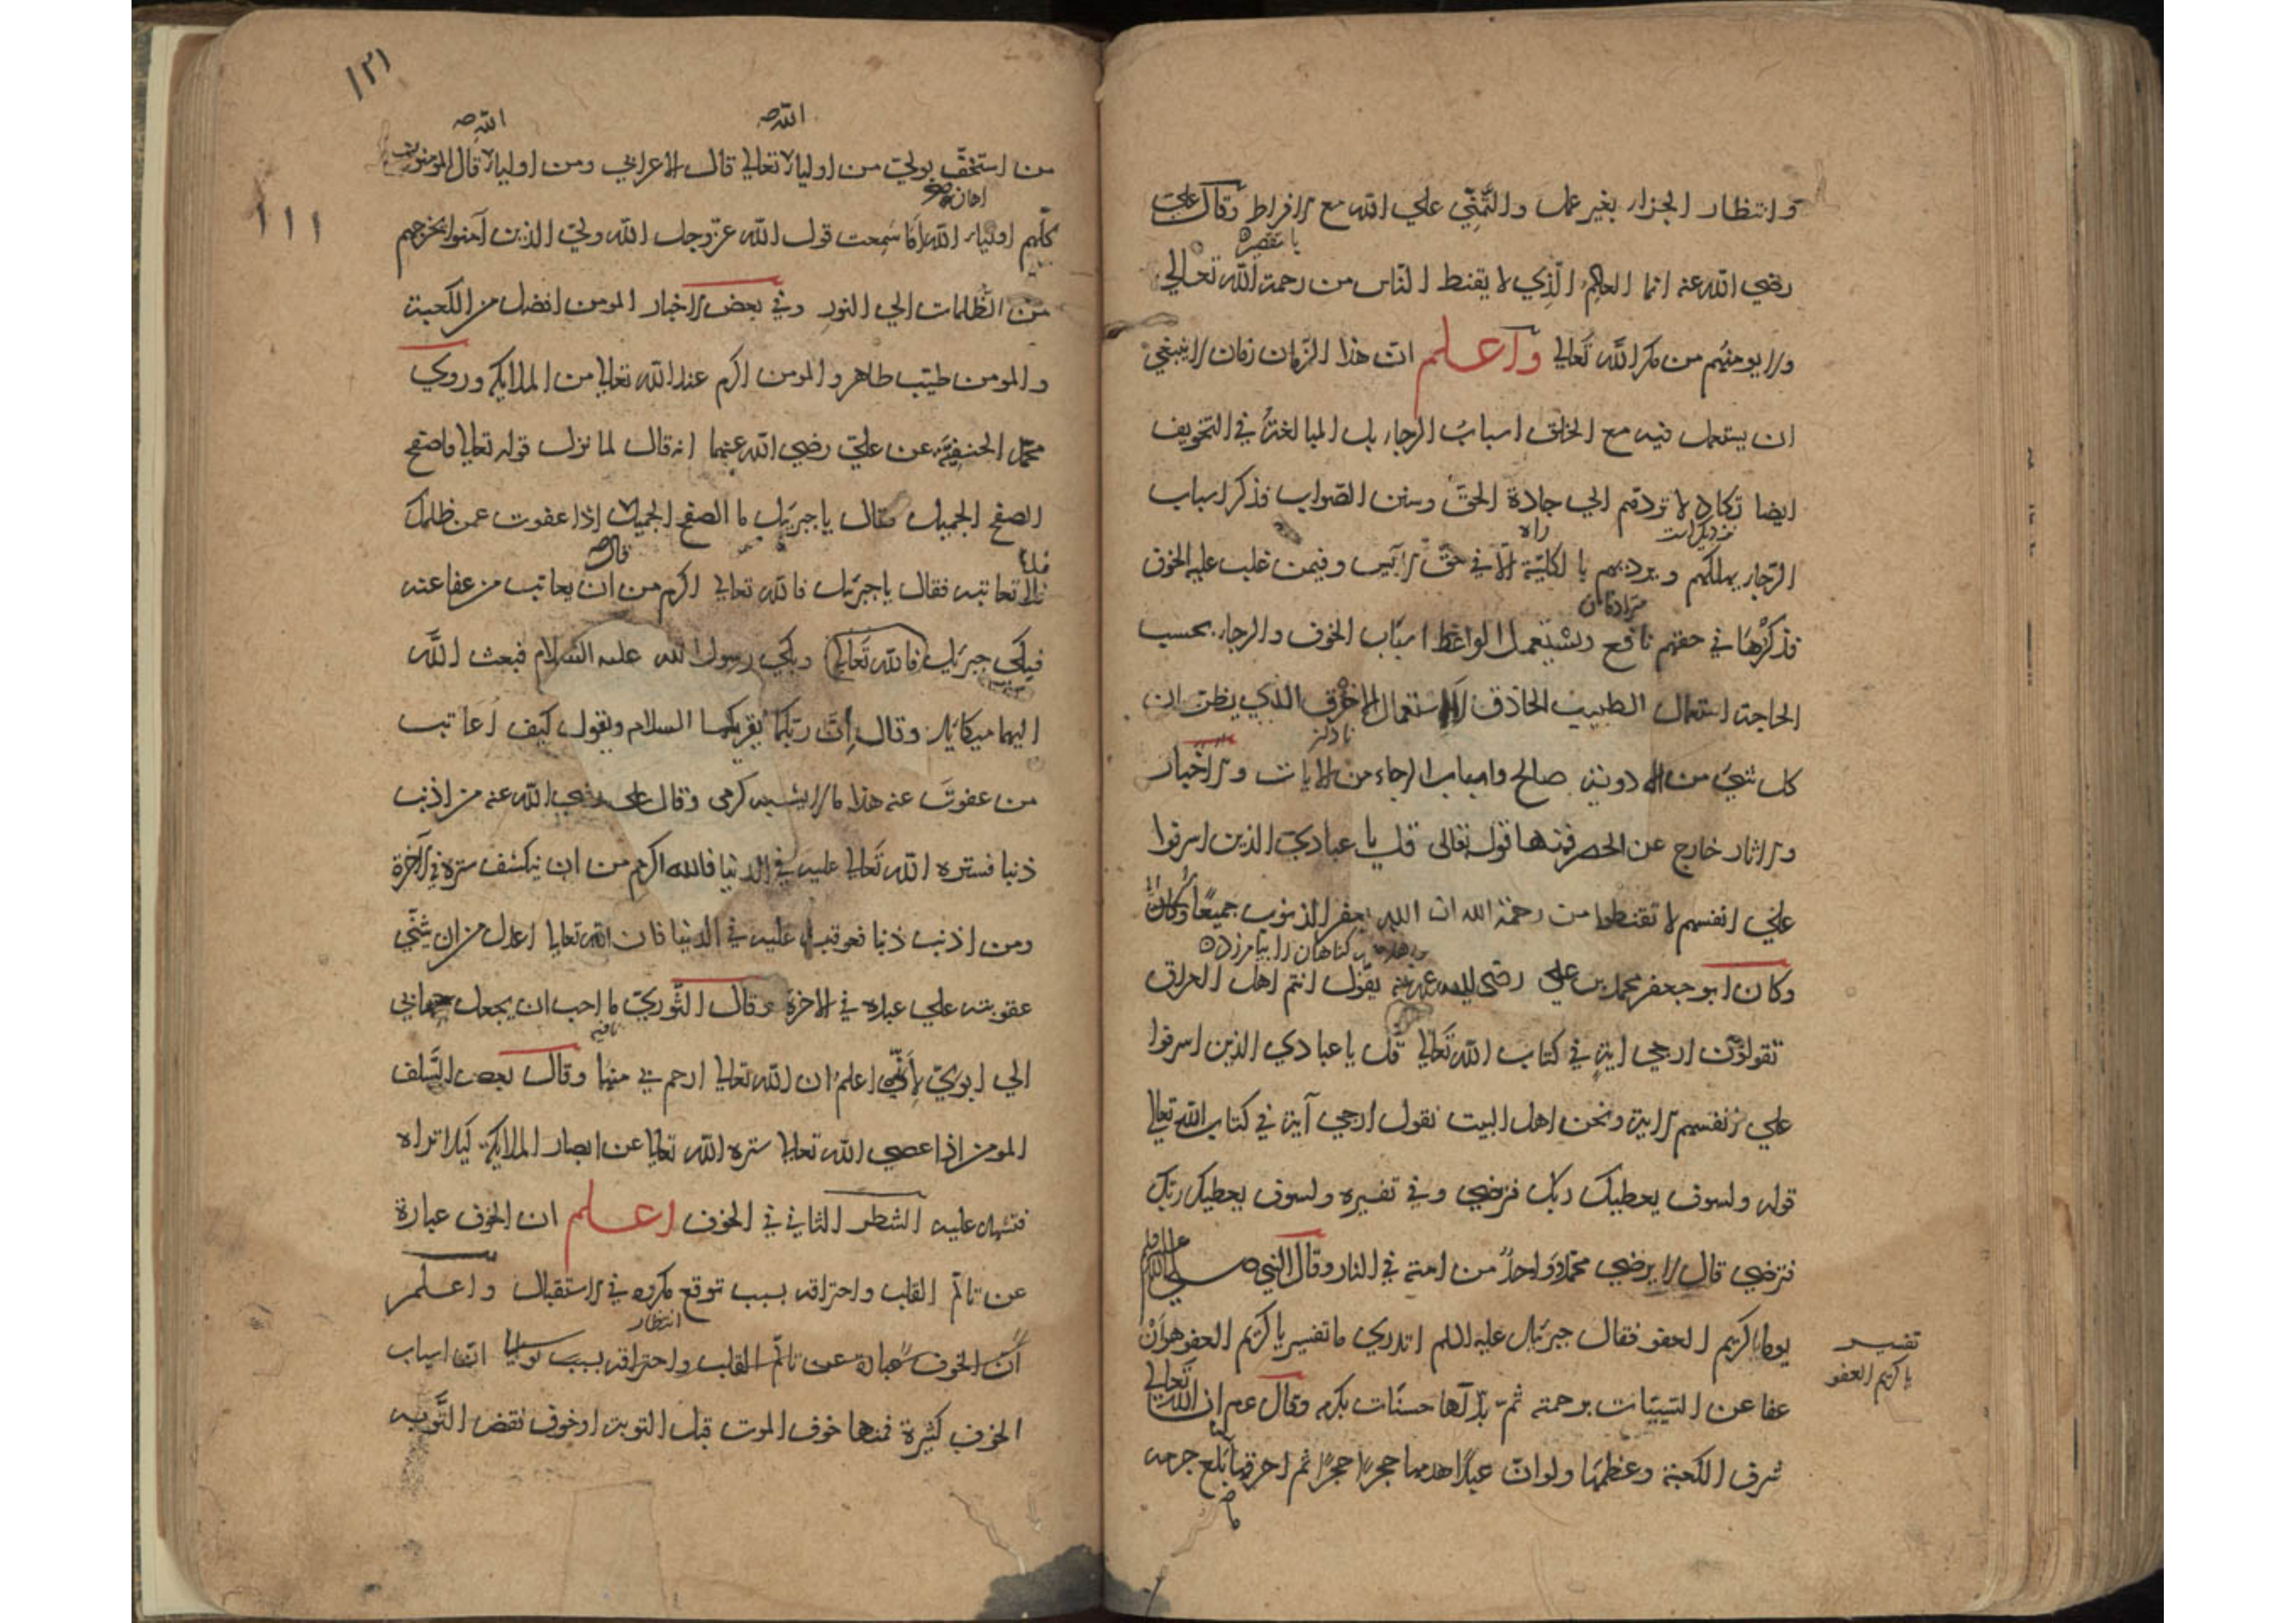 وانتظار الجزاء بغير عمل والتمني علي الله مع الافراط وقال علي
رضي الله عنه انما العالم الذي لا يقنط الناس من رحمة الله تعالي
ولا يومنهم من مكر الله تعالي واعلم ان هذا الزمان زمان لا ينبغي
ان يستعمل فيه مع الخلق اسباب الرجاء بل المبالغة في التخويف
ايضا تكاد لا تردهم الي جادة الحق وسنن الصواب فذكر اسباب
راه
الرجاء يهلكهم ويرديهم بالكلية الا في حق الايس وفيمن غلب عليه الخوف
فذكرها في حقهم نافع ويستعمل الواعظ اسباب الخوف والرجاء بحسب
الحاجة استعمال الطبيب الحاذق لا استعمال الاخرق الذي يظن ان
نادان
كل شيء من الادوية صالح واسباب الرجاء من الايات والاخبار
والاثار خارج عن الحصر فمنها قوله تعالى قل يا عبادي الذين اسرفوا
علي انفسهم لا تقنطوا من رحمة الله ان الله يغفر الذنوب جميعا وكان
كناهان را بيامرزده
وكان ابو جعفر محمد بن علي رضي الله عنه يقول انتم اهل العراق
تقولون ارجي اية في كتاب الله تعالي قل يا عبادي الذين اسرفوا
علي انفسهم الاية ونحن اهل البيت نقول ارجي آية في كتاب الله تعالي
قوله ولسوف يعطيك ربك فترضي وفي تفسيره ولسوف يعطيك ربك
فترضي قال لا يرضي محمد وواحد من امته في النار وقال النبي صلي الله عليه وسلم
يوما يا كريم العفو فقال جبرئيل عليه السلم اتدري ما تفسير يا كريم العفو هو ان
تفسير
يا كريم العفو
عفا عن السيئات برحمته ثم بدلها حسنات بكرمه وقال عم ان الله تعالي
شرف الكعبة وعظمها ولو ان عبدا هدمها حجرا حجرا ثم احرقها ما بلغ جرمه
١٢١
الله صه
الله صه
من استخف بولي من اولياء تعالي قال الاعرابي ومن اولياء قال المومنون
اهان
١١١
كلهم اولياء الله اما سمعت قول الله عز وجل الله ولي الذين آمنوا يخرجهم
من الظلمات الي النور وفي بعض الاخبار المومن افضل من الكعبة
والمومن طيب طاهر والمومن اكرم عند الله تعالي من الملايكة وروي
محمد الحنفية عن علي رضي الله عنهما انه قال لما نزل قوله تعالي فاصفح
الصفح الجميل فقال يا جبرئيل ما الصفح الجميل قال اذا عفوت عمن ظلمك
فلا تعاتبه فقال يا جبرئيل فالله تعالي اكرم من ان يعاتب من عفا عنه
فبكي جبرئيل فالله تعالي وبكي رسول الله عليه السلام فبعث الله
اليهما ميكائيل وقال ان ربكما يقريكما السلام ويقول كيف اعاتب
من عفوت عنه هذا ما لا يشبه كرمي وقال علي رضي الله عنه من اذنب
ذنبا فستره الله تعالي عليه في الدنيا فالله اكرم من ان يكشف ستره في الآخرة
ومن اذنب ذنبا فعوقب عليه في الدنيا فان الله تعالي اعدل من ان يثني
عقوبته علي عبده في الاخرة وقال الثوري ما احب ان يجعل حسابي
الي ابوي لاني اعلم ان الله تعالي ارحم بي منهما وقال بعض السلف
المومن اذا عصي الله تعالي ستره الله تعالي عن ابصار الملايكة كيلا تراه
فتشهد عليه الشطر الثاني في الخوف اعلم ان الخوف عبارة
عن تالم القلب واحتراقه بسبب توقع مكروه في الاستقبال واعلم
انتظار
ان الخوف عبارة عن تالم القلب واحتراقه بسبب ان اسباب
الخوف كثيرة فمنها خوف الموت قبل التوبة او خوف نقض التوبه